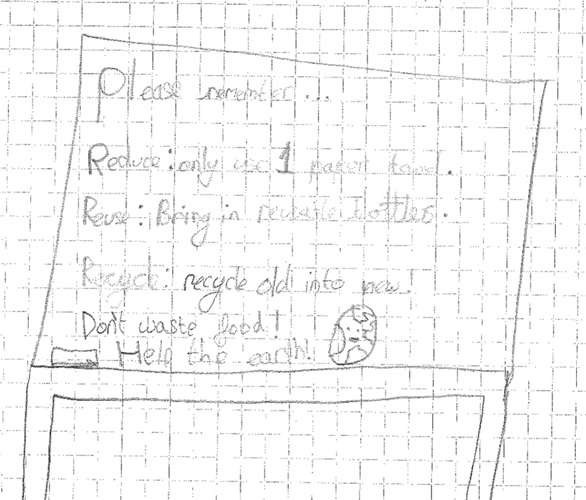 Please remember...
Reduce: only use 1 paper towel.
Reuse: Bring in reusable bottles.
Recycle: recycle old into new!
Don't waste food!
Help the earth!